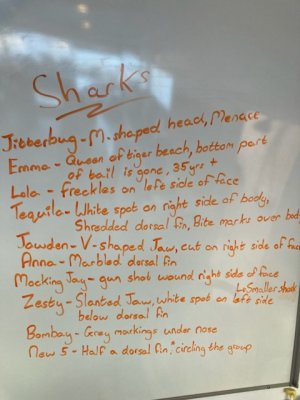 Sharks
Jitterbug - M. shaped head, Menace
Emma - Queen of tiger beach, bottom part
of tail is gone, 35yrs +
Lola - freckles on left side of face
Tequila - White spot on right side of body,
Shredded dorsal fin, Bite marks over body
Jowden - V-shaped Jaw, cut on right side of face
Anna - Marbled dorsal fin
Mocking Jay - gun shot wound right side of face
↳ Smaller shark
Zesty - Slanted Jaw, white spot on left side
below dorsal fin
Bombay - Grey markings under nose
New 5 - Half a dorsal fin, circling the group